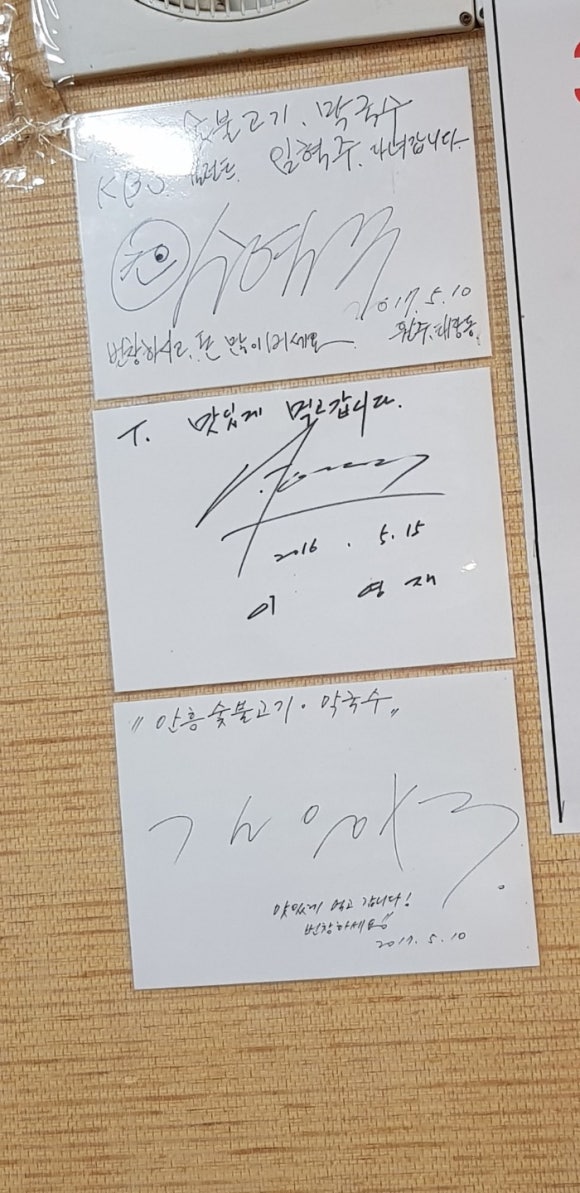 숯불고기. 막국수
KBS 임혁주. 다녀갑니다
번창하시고. 돈 많이버세요
2017. 5. 10
T. 맛있게 먹고갑니다.
2016 . 5. 15
이 영재
"안흥숯불고기·막국수"
맛있게 먹고 갑니다!
번창하세요
2017. 5. 10